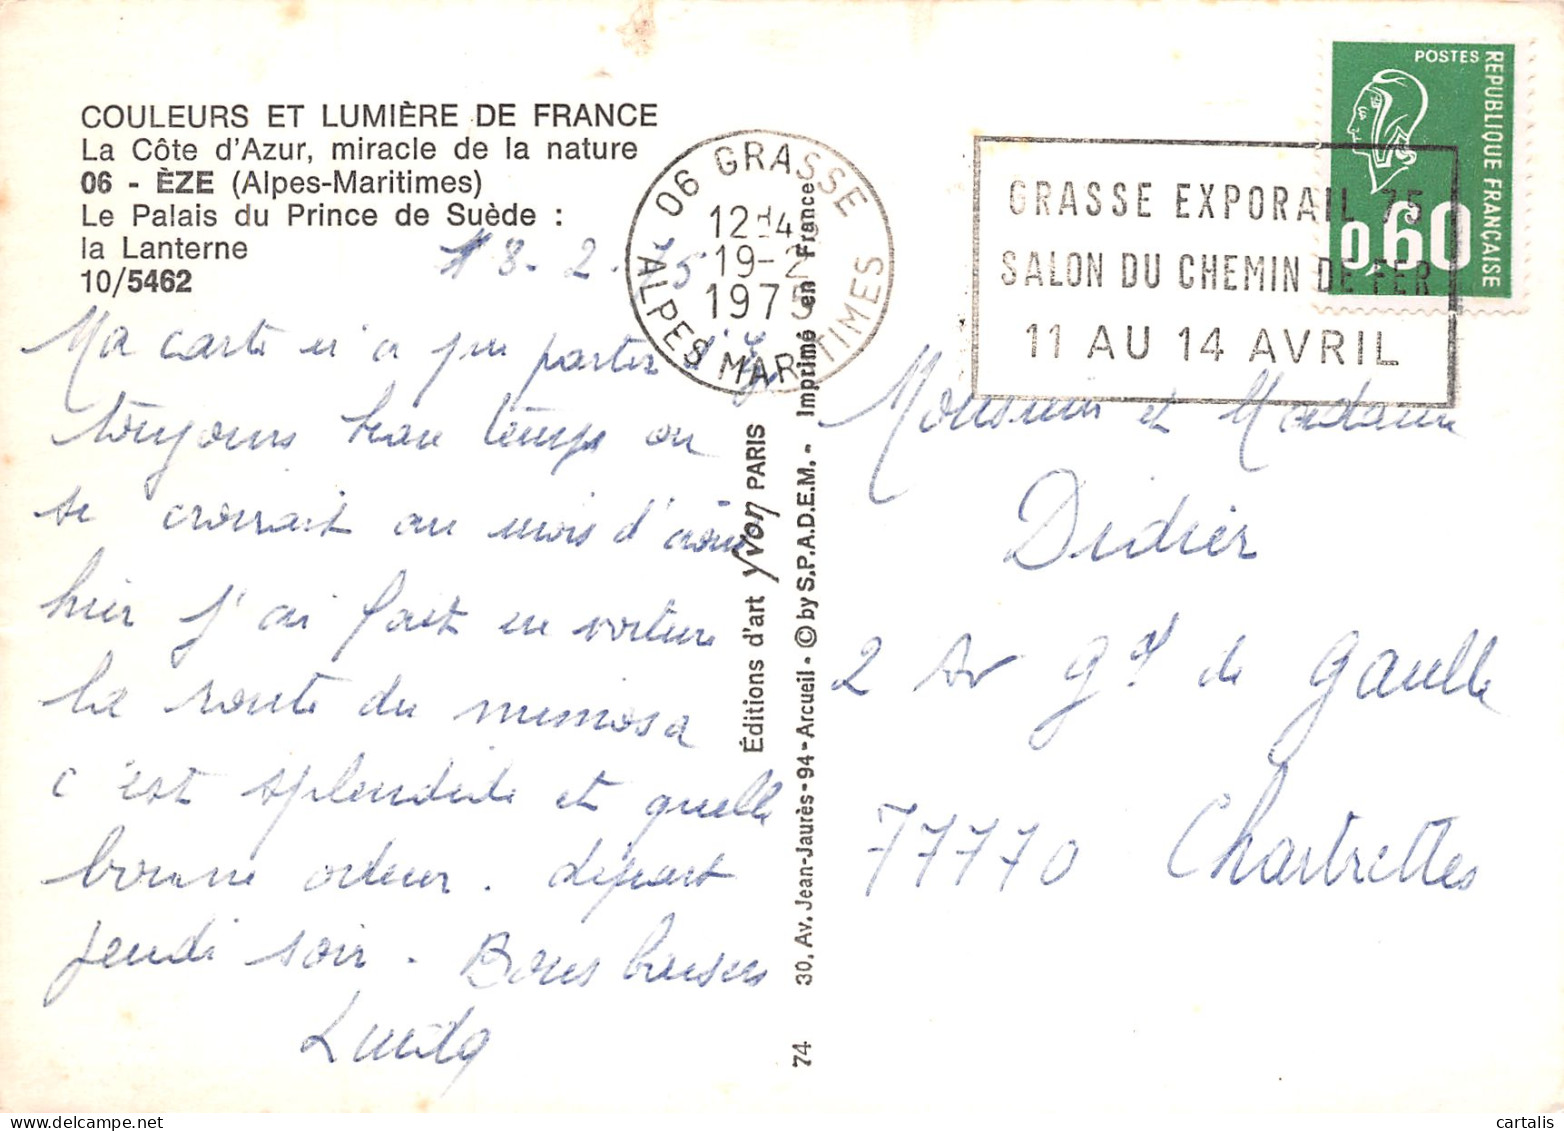 COULEURS ET LUMIÈRE DE FRANCE
La Côte d'Azur, miracle de la nature
06 - ÈZE (Alpes-Maritimes)
Le Palais du Prince de Suède :
la Lanterne
10/5462
18-2-75
Ma carte n'a pu partir
toujours beau temps on
se croirait au mois d'
hier j'ai fait en voiture
la route du mimosa
c'est splendide et quelle
bonne odeur. départ
jeudi soir. Bons baisers
06 GRASSE
12H4
19-2
1975
ALPES MARITIMES
Éditions d'art yvon PARIS
30, Av. Jean-Jaurès-94-Arcueil - © by S.P.A.D.E.M. - Imprimé en France
74
GRASSE EXPORAIL 75
SALON DU CHEMIN DE FER
11 AU 14 AVRIL
POSTES
REPUBLIQUE FRANÇAISE
0,60
Monsieur et Madame
Didier
2 Av Gal de Gaulle
77770 Chartrettes
delcampe.net
cartalis